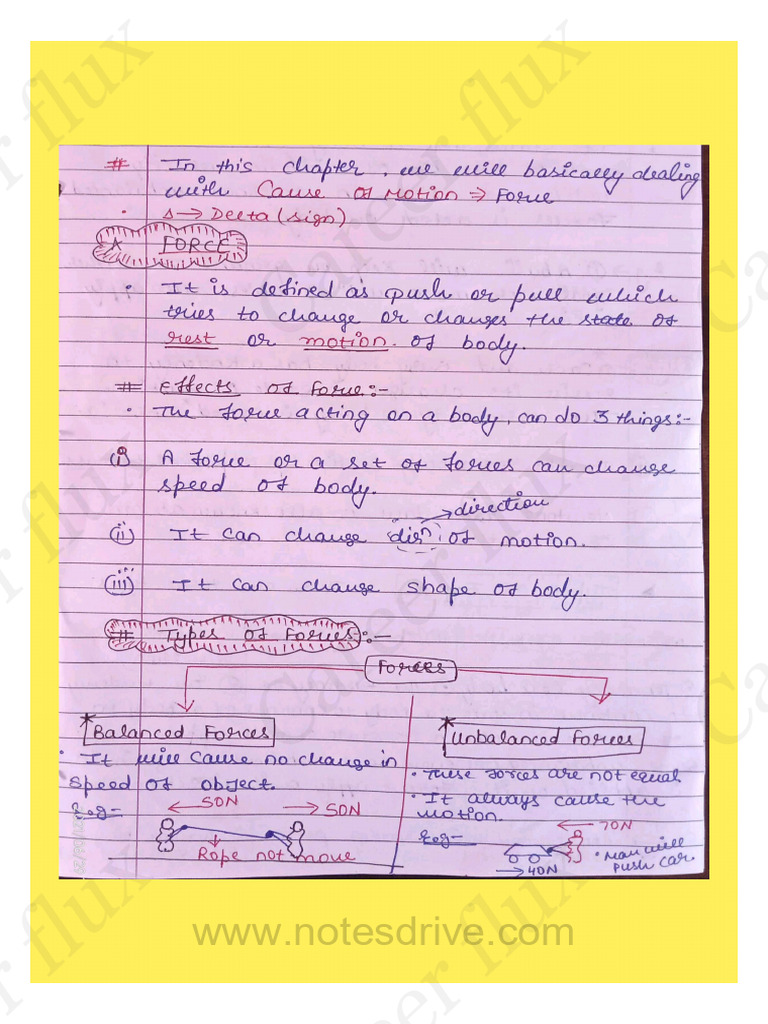 # In this chapter, we will basically dealing
with Cause of Motion ⇒ Force
• Δ → Delta (sign)
* FORCE
• It is defined as push or pull which
tries to change or changes the state of
rest or motion of body.
# Effects of Force:-
• The force acting on a body, can do 3 things:-
(i) A force or a set of forces can change
speed of body.
→ direction
(ii) It can change dirn of motion.
(iii) It can change shape of body.
# Types of Forces:-
Forces
* Balanced Forces
• It will cause no change in
speed of object.
Eg-
50N
50N
Rope not move
* Unbalanced Forces
• These forces are not equal
• It always cause the
motion.
Eg-
70N
40N
• Man will
push car.
www.notesdrive.com
Career flux